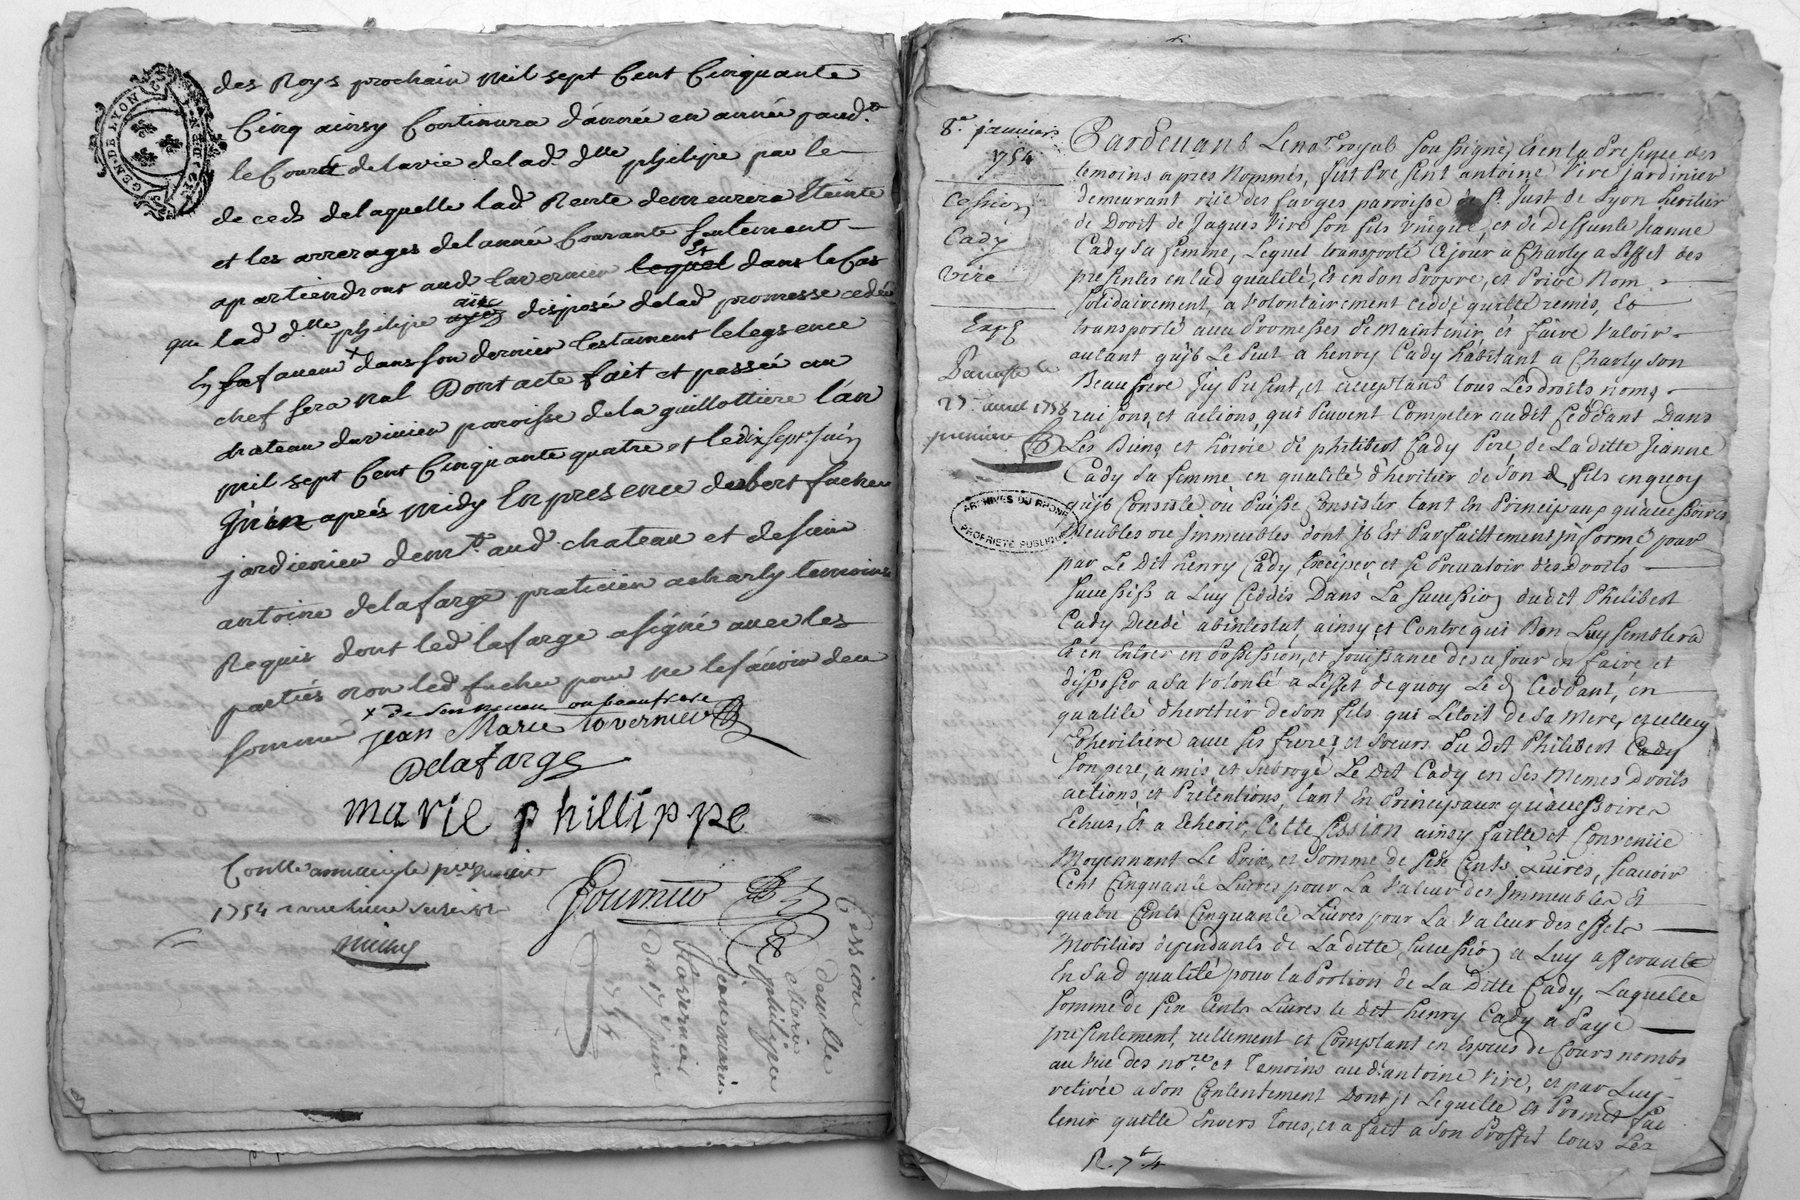 GEN. DE LYON
des Roys prochain mil sept Cent Cinquante
Cinq ainsy Continura d'année en année pand.t
le Cours de la vie de lad. dlle philipe par le
de ced. de laquelle lad Rente demeurera Steinte
et les arrerages de l'année Courante seulement
apartiendront aud tavernier lequel dans le Cas
que lad dlle philipe aye disposé de lad promesse cedée
En sa faveur dans son dernier testament le legs en ce
chef sera nul Dont acte fait et passée au
chateau du vivier paroisse de la guillottiere l'an
mil sept Cent Cinquante quatre et le dix sept Juin
Juin aprés midy En presence de
jardienier demt. aud chateau et de sieur
antoine delafarge praticien a charly temoins
Requis dont led lafarge a signé avec les
parties non led pour ne le sçavoir de ce
sommé
x de son neveu ou beaufrere
jean Marie tavernier
Delafarge
marie phillippe
1754
Fournier
Cession
d'amlle
Marie
philippe
a
jean marie
tavernier
du 17e juin
1754
8e. janvier
1754
Cession
Cady
Vire
Exp
27. avril 1758
ARCHIVES DU RHONE
PROPRIÉTÉ PUBLIQUE
Pardevant Le notre royal soussigné, et en la presence des
temoins apres nommés, fut present antoine Vire jardinier
demeurant rüe des farges paroisse de St. Just de Lyon heritier
de Droit de Jaques Vire son fils Unique, et de Deffunte Jeanne
Cady Sa femme, Lequel transporté Cejour a Charly a Leffet des
presentes en lad qualité, et en son Propre, et Privé Nom
Solidairement, a Volontairement Ceddé quitté remis, et
transporté avec Promesses de Maintenir, et faire Valoir
autant qu'jl Le Peut a henry Cady habitant a Charly son
Beaufrere Jcy Present, et acceptant tous Les droits noms
raisons, et actions, qui Peuvent Competer audit Ceddant Dans
Les Biens et hoirie de philibert Cady Pere, de La ditte Jeanne
Cady Sa femme en qualité d'heritier de son d fils en quoy
qu'jl Consiste ou Puisse Consister tant En Principaux qu'accessoires
Meubles ou Jmmeubles dont jl Est Parfaittement jnformé pour
par Le Dit henry Cady, Exciper, et se Prevaloir des droits
Successifs a Luy Ceddés Dans La Succession dudit Philibert
Cady Decedé abintestat, ainsy et Contre qui Bon Luy semblera
Et en Entrer en Possession, et jouissance de ce jour en faire et
disposer a Sa Volonté a Leffet de quoy Le d Ceddant, en
qualité d'heritier de son fils qui Letoit de Sa Mere, et elle
Coheritiere avec ses freres et Soeurs du Dit Philibert Cady
son pere, a mis et Subrogé Le Dit Cady en Ses Memes Droits
actions et Pretentions, tant En Principaux qu'accessoires
Echus, et a Echeoir, Cette Cession ainsy faitte et Convenüe
Moyennant Le Prix, et Somme de six Cents Livres, scavoir
Cent Cinquante Livres pour La Valeur des Jmmeubles et
quatre Cents Cinquante Livres pour La Valeur des effets
Mobiliers dependants de Laditte Succession a Luy afferante
En Sad qualité pour la Portion de La Ditte Cady, Laquelle
somme de six Cents Livres le dit henry Cady a Payé
presentement, reellement et Comptant en Especes de Cours nombré
au Vüe des nore. et Temoins aud. antoine Vire, et par Luy
retirée a Son Contentement Dont jl Le quitte Et Promet faire
tenir quitte Envers Tous, et a fait a Son Proffit tous Les